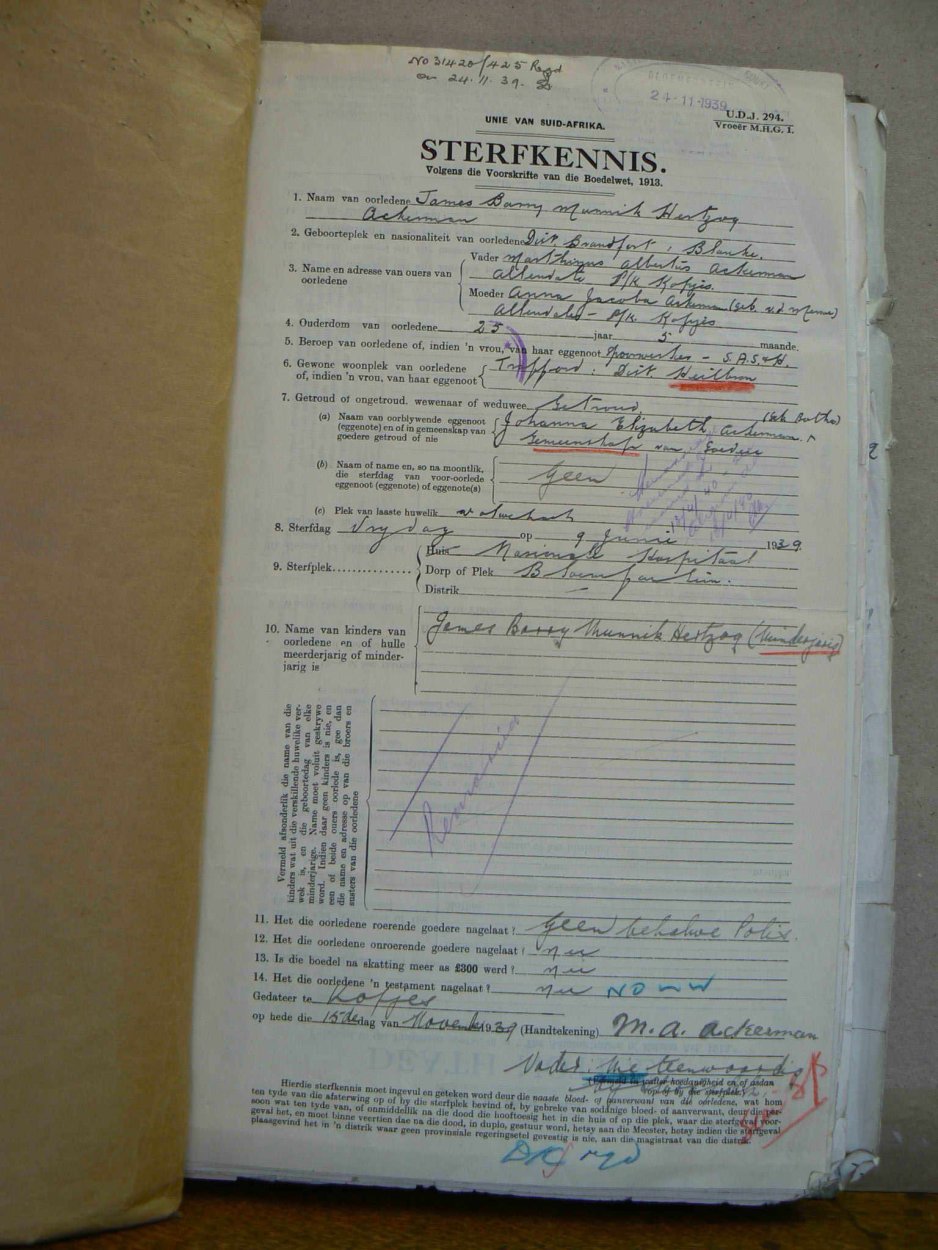 No 31420/425 Recd
on 24.11.39.
24-11-1939
U.D.J. 294.
Vroeër M.H.G. I.
UNIE VAN SUID-AFRIKA.
STERFKENNIS.
Volgens die Voorskrifte van die Boedelwet, 1913.
1. Naam van oorledene James Barry Munnik Hertzog
Ackerman
2. Geboorteplek en nasionaliteit van oorledene Dist. Brandfort ; Blanke.
3. Name en adresse van ouers van oorledene
Vader Marthinus Albertus Ackerman
Allendale P/K Kofjes.
Moeder Anna Jacoba Ackerman (geb. v.d. Merwe)
Allendale - P/K Kofjes
4. Ouderdom van oorledene 25 jaar 5 maande.
5. Beroep van oorledene of, indien 'n vrou, van haar eggenoot Spoorwerker - S.A.S. & H.
6. Gewone woonplek van oorledene
of, indien 'n vrou, van haar eggenoot
Trafford : Dist. Heilbron
7. Getroud of ongetroud, wewenaar of weduwee Getroud
(a) Naam van oorblywende eggenoot
(eggenote) en of in gemeenskap van
goedere getroud of nie
Johanna Elizabeth Ackerman (geb Botha)
Gemeenskap van Goedere
(b) Naam of name en, so na moontlik,
die sterfdag van voor-oorlede
eggenoot (eggenote) of eggenote(s)
Geen
(c) Plek van laaste huwelik
8. Sterfdag Vrydag op 9 Junie 1939.
9. Sterfplek
Huis Nasionale Hospitaal
Dorp of Plek Bloemfontein.
Distrik —
10. Name van kinders van
oorledene en of hulle
meerderjarig of minder-
jarig is
James Barry Munnik Hertzog (minderjarig)
Vermeld afsonderlik die name van die
kinders wat uit die verskillende huwelike ver-
wek is, en die geboortedag van elke
minderjarige. Name moet voluit geskrywe
word. Indien daar geen kinders is nie, en
een of beide ouers oorlede is, gee dan
die name en adresse op van die broers en
susters van die oorledene
11. Het die oorledene roerende goedere nagelaat? Geen behalwe Polis.
12. Het die oorledene onroerende goedere nagelaat? nee
13. Is die boedel na skatting meer as £300 werd? nee
14. Het die oorledene 'n testament nagelaat? nee
Gedateer te Kofjes
op hede die 15de dag van November 1939 (Handtekening) M. A. Ackerman
Vader : Nie teenwoordig
(Vermeld in watter hoedanigheid en of aldan
nie op die sterfplek)
Hierdie sterfkennis moet ingevul en geteken word deur die naaste bloed- of aanverwant van die oorledene, wat hom
ten tyde van die afsterwing op of by die sterfplek bevind of, by gebreke van sodanige bloed- of aanverwant, deur die per-
soon wat ten tyde van, of onmiddellik na die dood die hooftoesig het in die huis of op die plek, waar die sterfgeval voor-
geval het, en moet binne veertien dae na die dood, in duplo, gestuur word, hetsy aan die Meester, hetsy indien die sterfgeval
plaasgevind het in 'n distrik waar geen provinsiale regeringsetel gevestig is nie, aan die magistraat van die distrik.